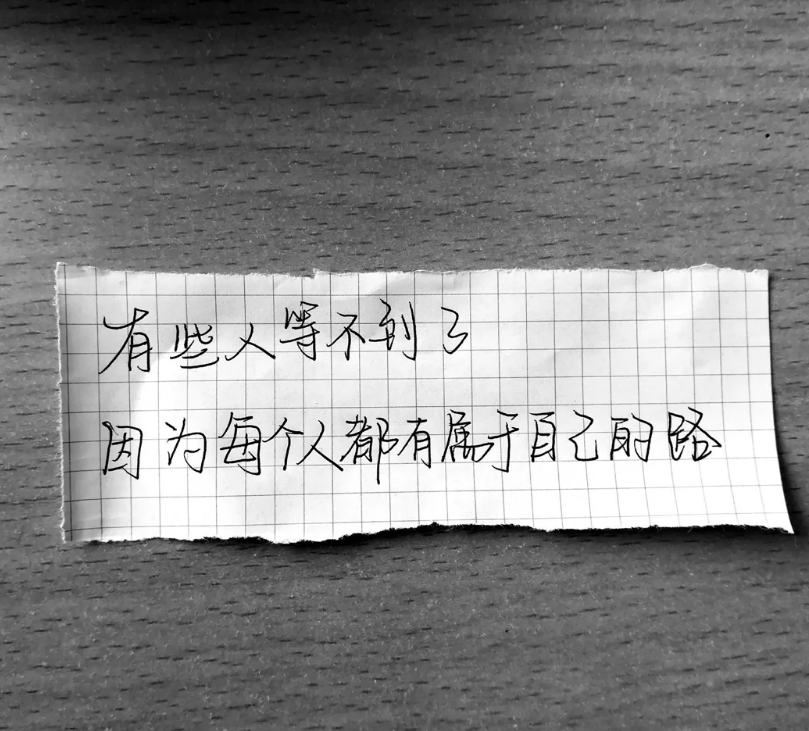 有些人等不到了
因为每个人都有属于自己的路